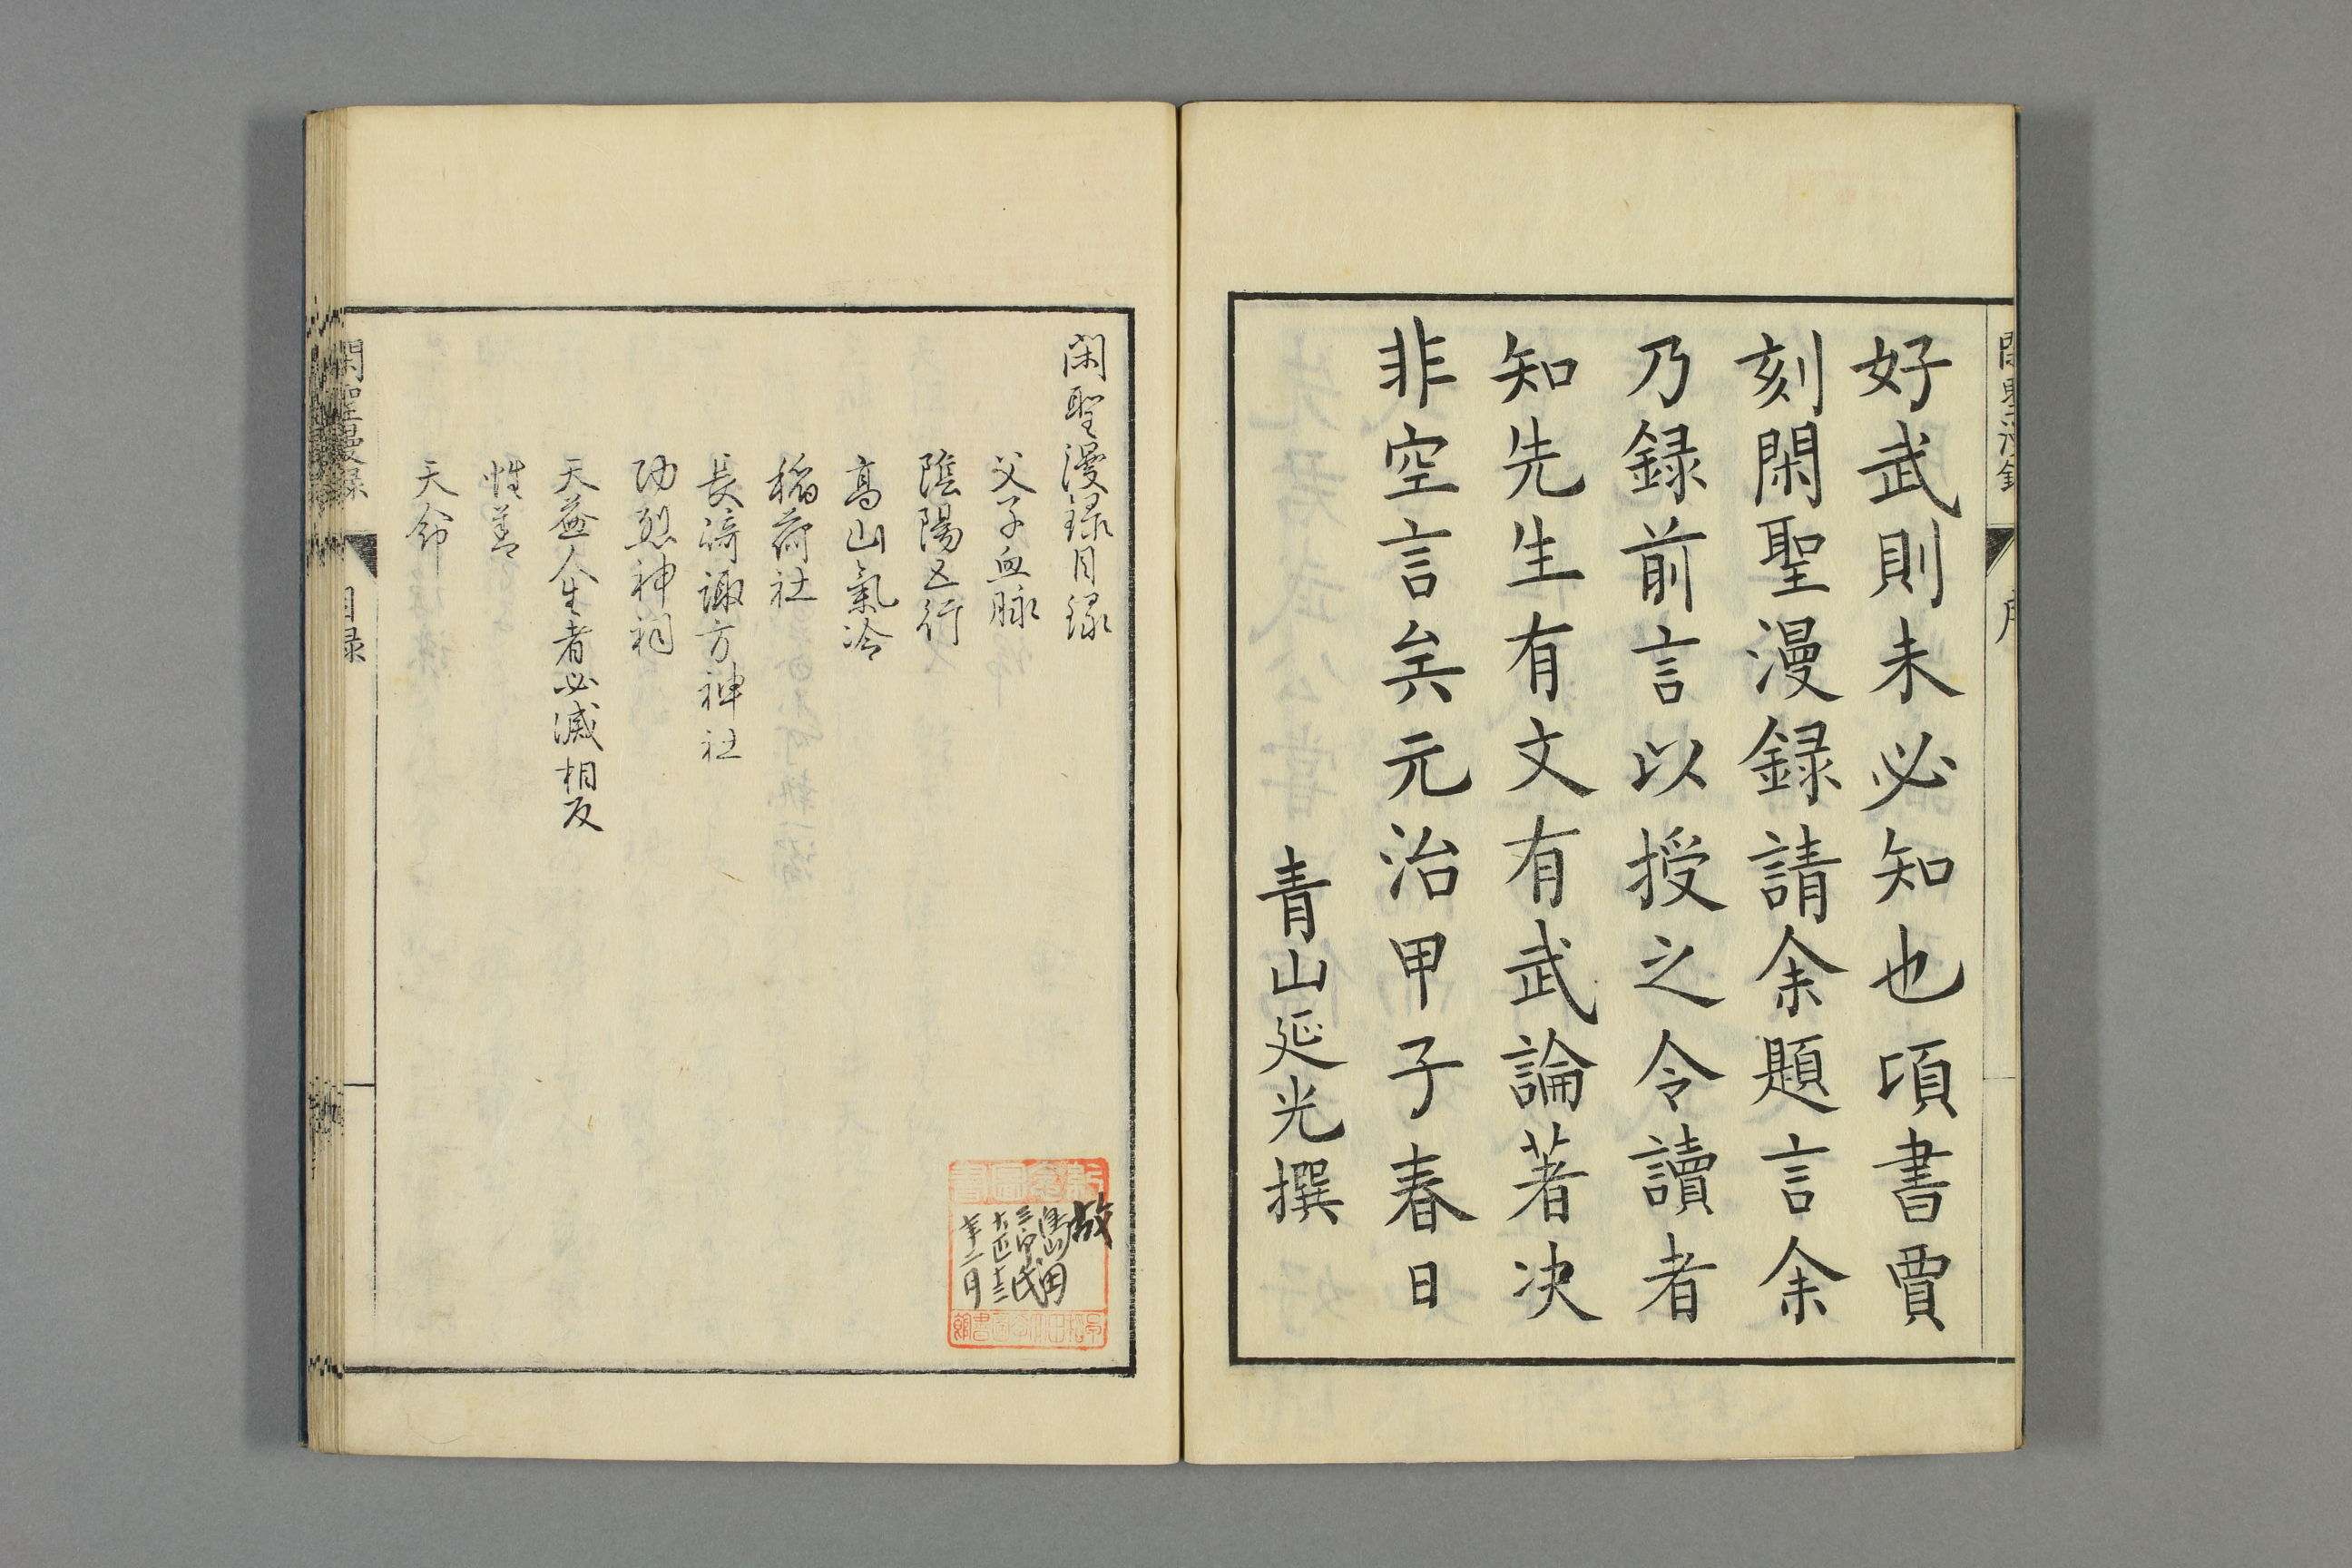 好武則未必知也項書賈
刻閑聖漫録請余題言余
乃録前言以授之令讀者
知先生有文有武論著决
非空言矣元治甲子春日
青山延光撰
閑聖漫録目録
父子血脉
陰陽五行
高山氣冷
稲荷社
長﨑諏方神社
功烈神祠
天益人生者必滅相反
性善
天命
閑聖漫録
目録
故
島田
三郎氏
大正十三
年十一月